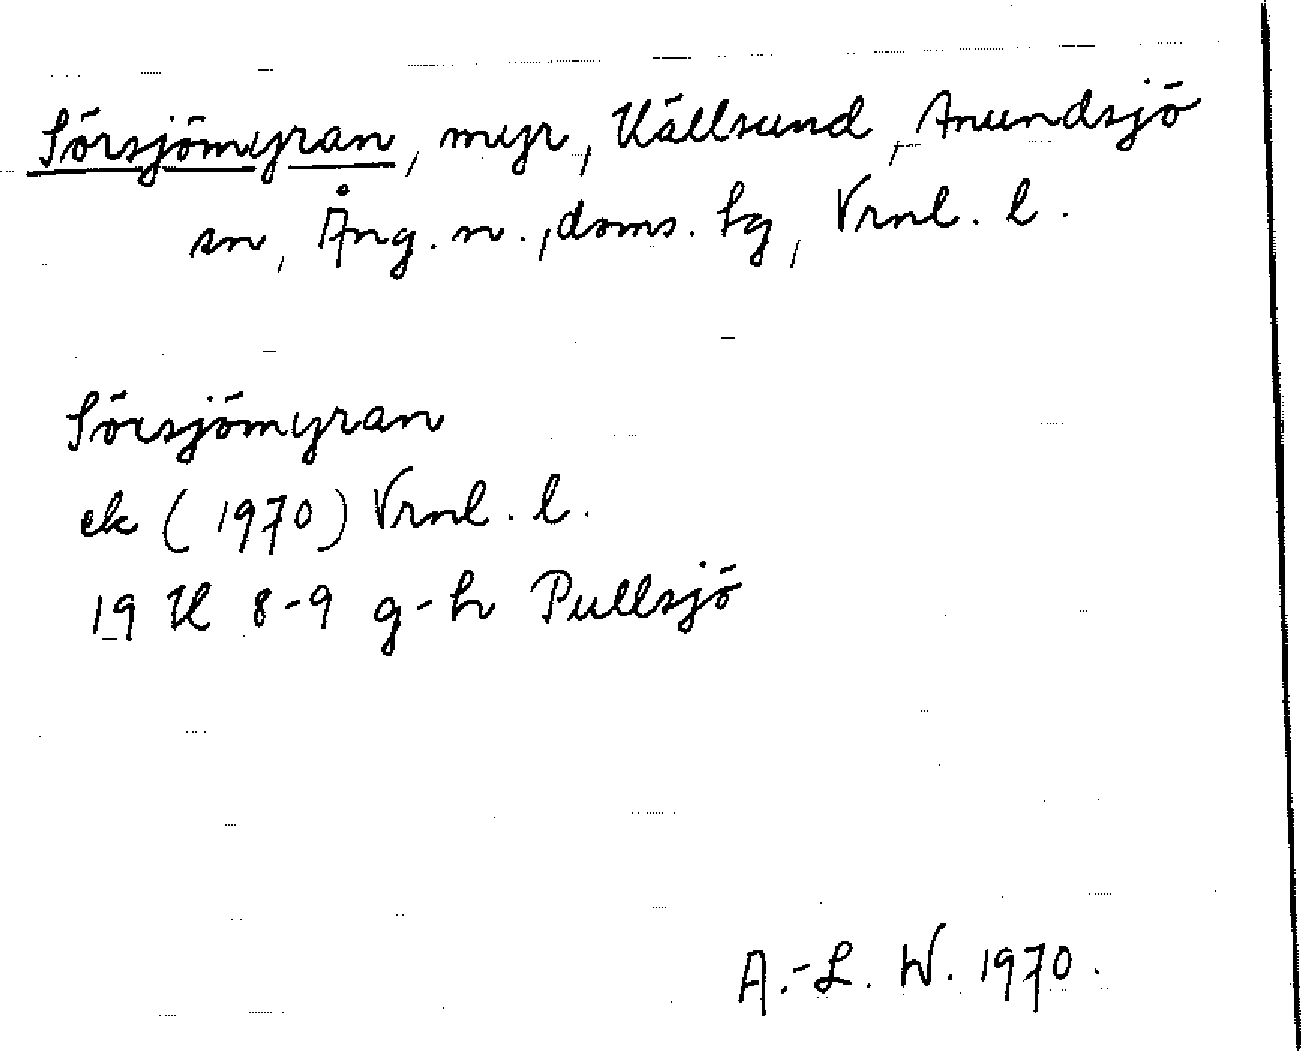 Sörsjömyran, myr, Hällsund, Anundsjö
sn, Ång. n., doms. tg, Vrnl. l.
Sörsjömyran
ek (1970) Vrnl. l.
19 H 8-9 g-h Pullsjö
A.-L. W. 1970.